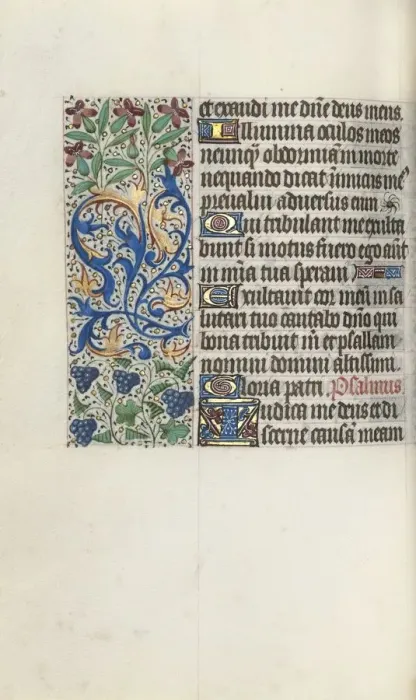 et exaudi me dn̄e deus meus.
Illumina oculos meos
ne unq̄ꝫ obdormiam in morte
nequando dicat inimicus me⁹
preualui aduersus eum
Qui tribulant me exulta
bunt si motus fuero ego aūt
in mīa tua speraui
Exultauit cor meū in sa
lutari tuo cantabo dn̄o qui
bona tribuit m̄ et psallam
nomini domini altissimi.
Gloria patri Psalmus
Iudica me deus et di
scerne causā meam